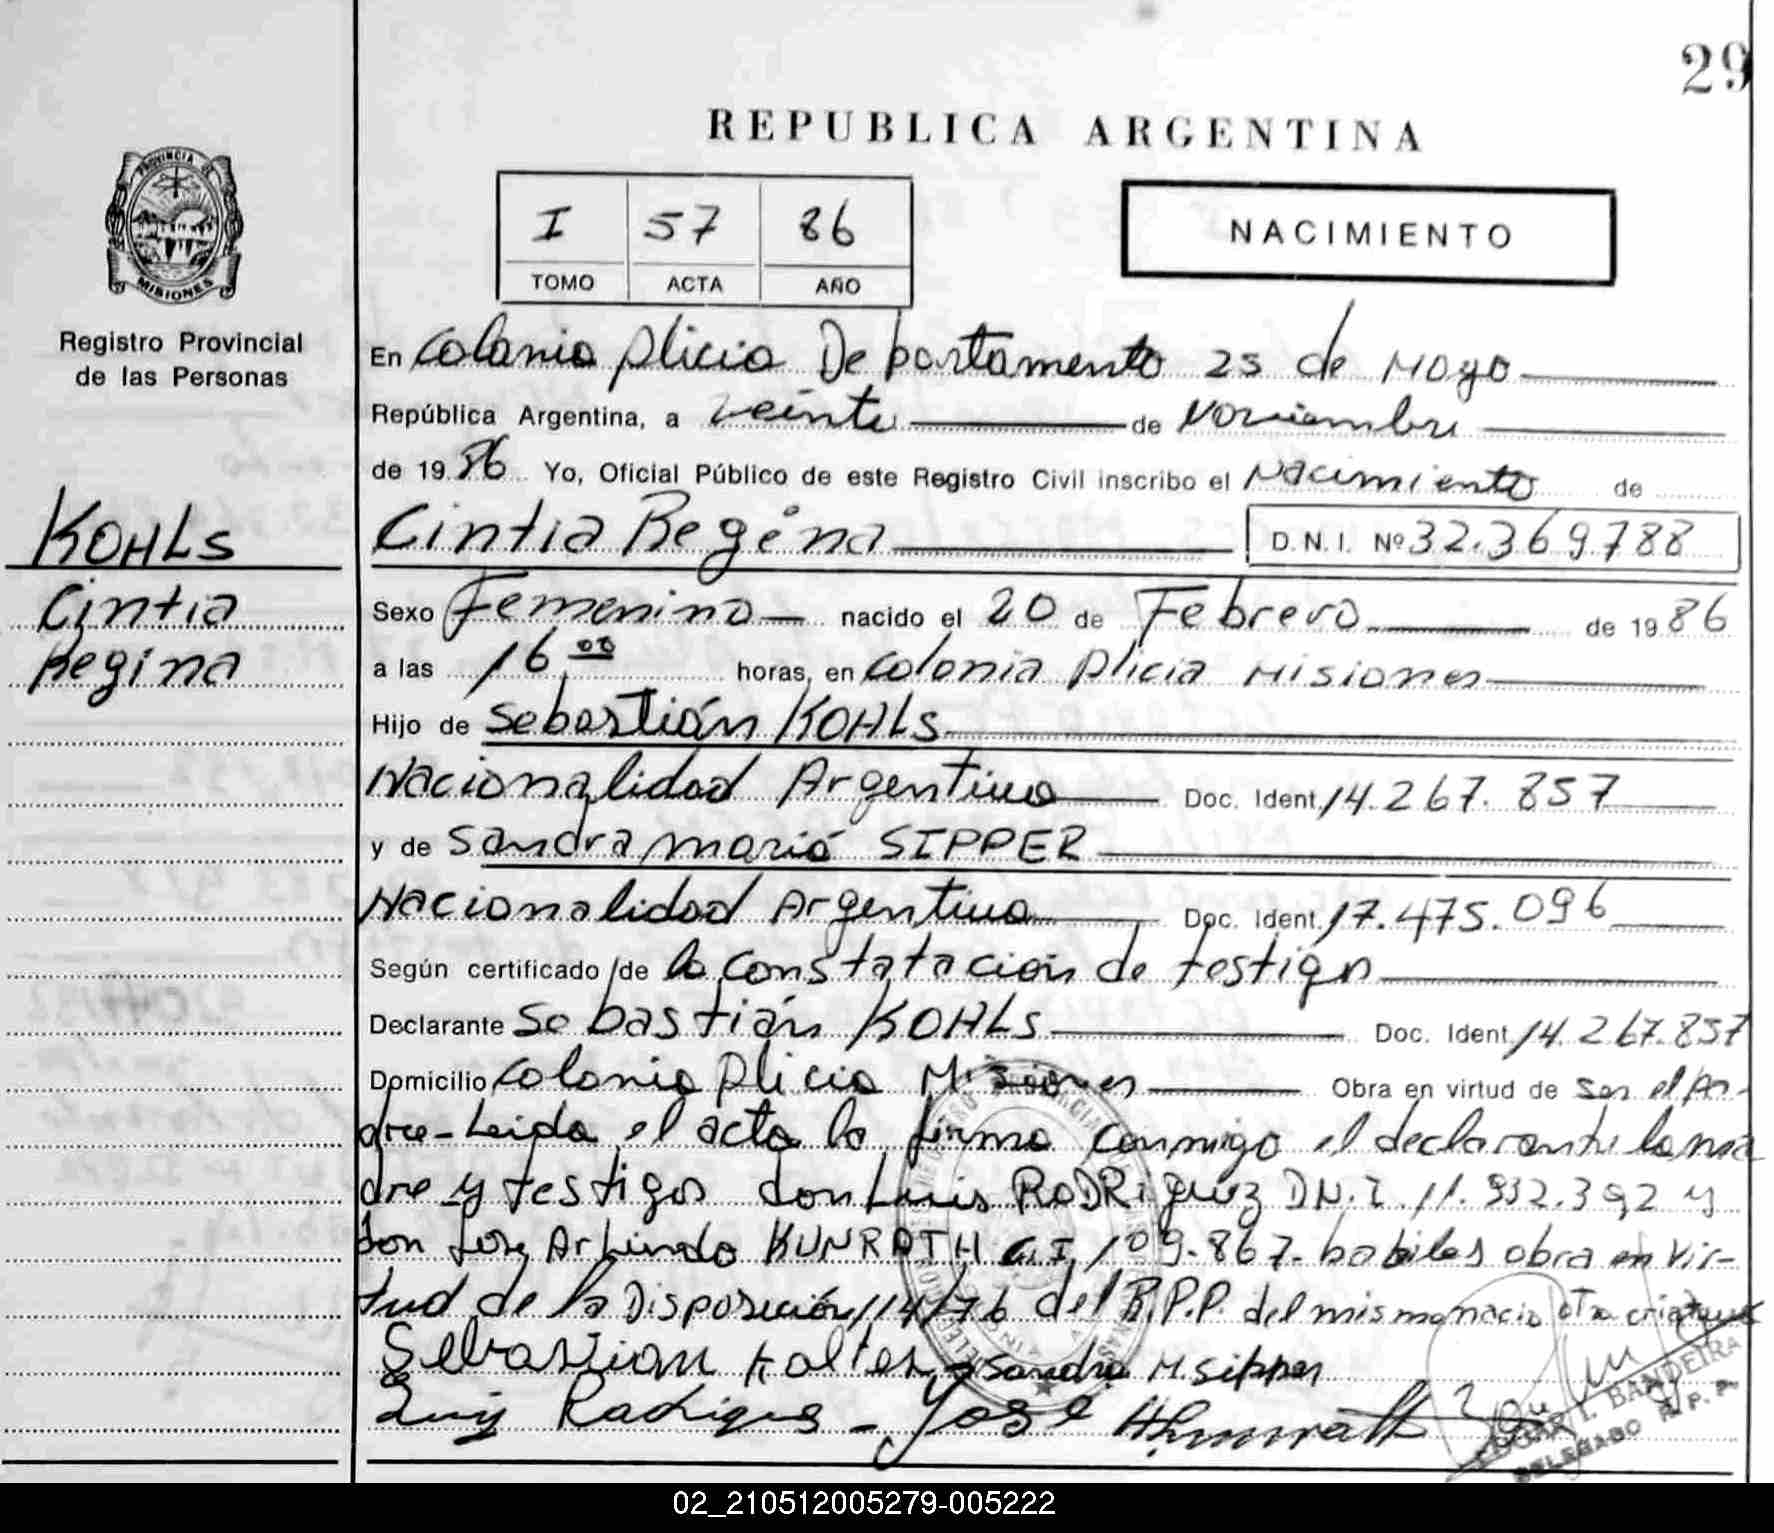 29
REPUBLICA ARGENTINA
PROVINCIA DE
MISIONES
I 57 86
TOMO ACTA AÑO
NACIMIENTO
Registro Provincial
de las Personas
En Colonia Alicia Departamento 25 de Mayo
República Argentina, a veinte de Noviembre
de 19 86 Yo, Oficial Público de este Registro Civil inscribo el Nacimiento de
KOHLS
Cintia Regina D.N.I. Nº 32.369.788
Cintia
Regina
Sexo Femenino nacido el 20 de Febrero de 19 86
a las 16 00 horas, en Colonia Alicia Misiones
Hijo de Sebastián KOHLS
Nacionalidad Argentina Doc. Ident. 14.267.857
y de Sandra maria SIPPER
Nacionalidad Argentina Doc. Ident. 17.475.096
Según certificado de la constatación de testigo
Declarante Sebastián KOHLS Doc. Ident. 14.267.857
Domicilio Colonia Alicia Misiones Obra en virtud de ser el pa-
dre - Leida el acta la firma conmigo el declarante la ma
dre y testigos don Luis RODRiguez D.N.I. 11.932.392 y
don Jose Arlindo KUNRATH C.I 109.867- habiles obra en vir-
tud de la Disposición 114/76 del R.P.P. del mismo nacio ota criatura
Sebastian Sandra M. Sipper
Luis Rodrigues - José A Kunrath
BANDEIRA
DELEGADO R.P.P.
02_210512005279-005222